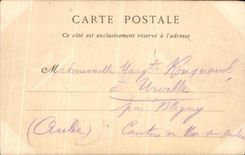 CARTE POSTALE
Ce côté est exclusivement réservé à l'adresse
Mademoiselle
à Urville
par Bligny
(Aube) Canton de Bar sur Aube